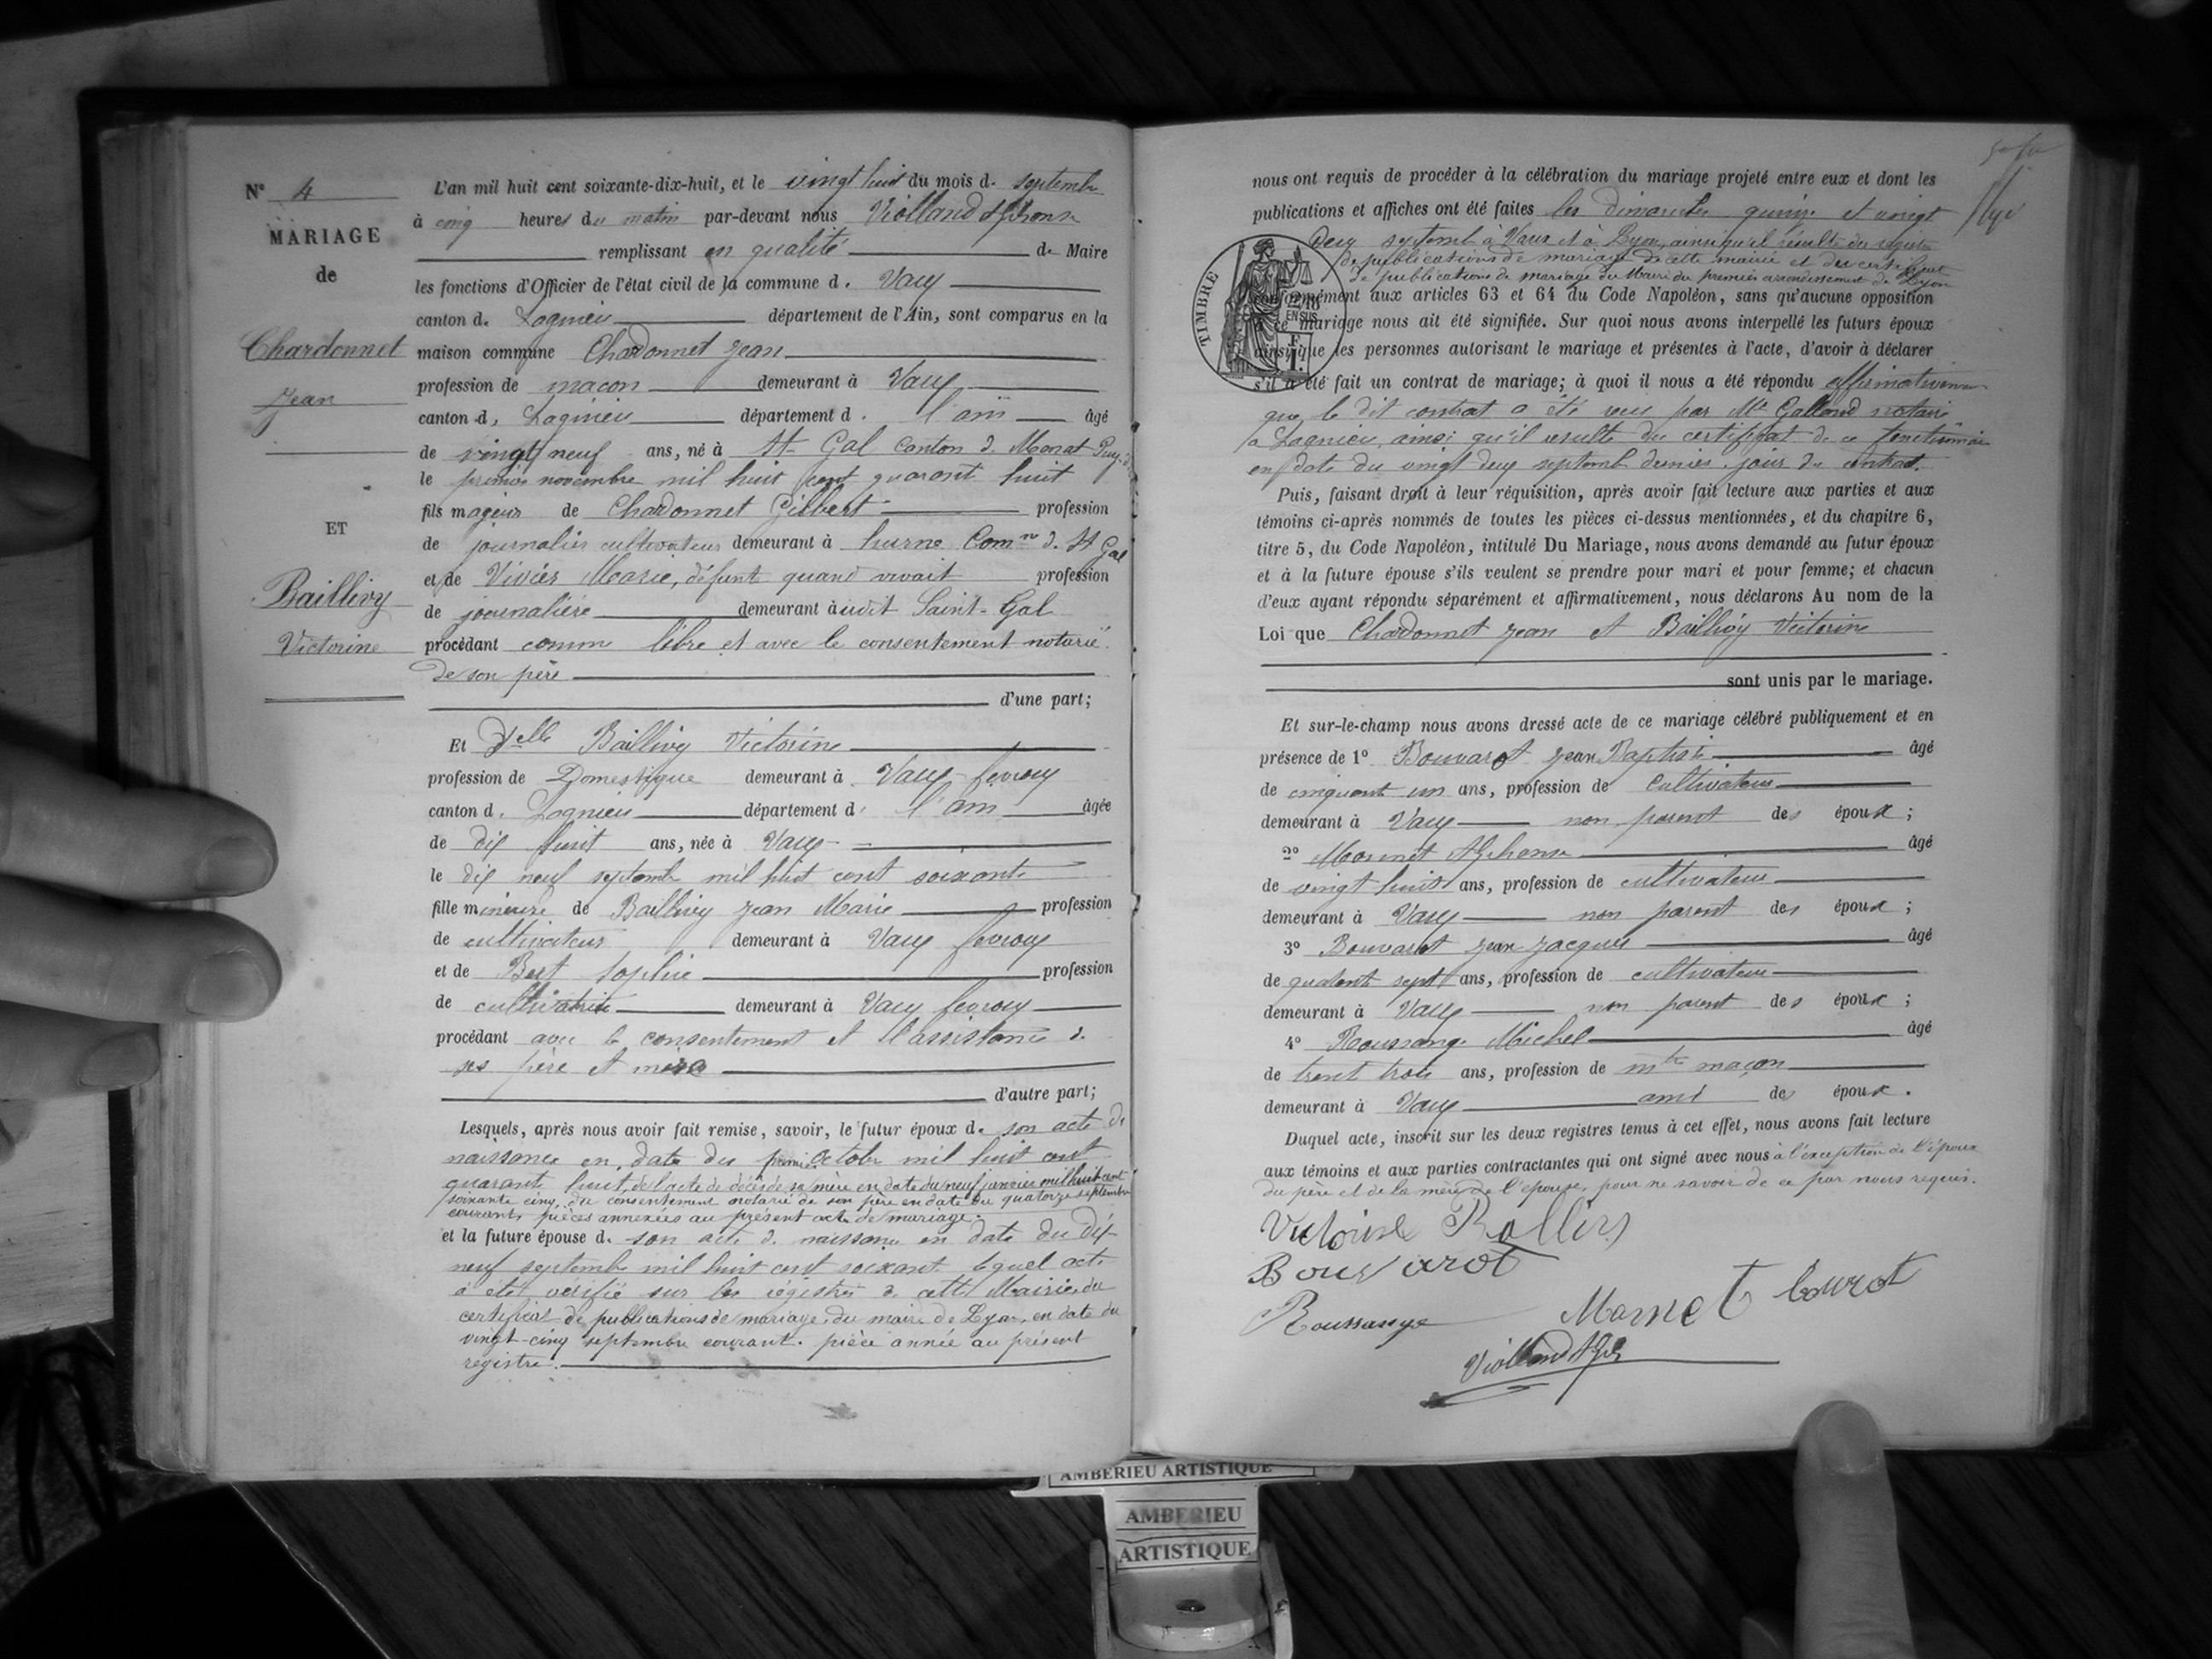 N° 4
MARIAGE
de
Chardonnet
Jean
ET
Baillivy
Victorine
L'an mil huit cent soixante-dix-huit, et le vingt huit du mois d. septembre
à cinq heures du matin par-devant nous Violland Alphonse
remplissant en qualité de Maire
les fonctions d'Officier de l'état civil de la commune d. Vaux
canton d. Lagnieu département de l'Ain, sont comparus en la
maison commune Chardonnet Jean
profession de maçon demeurant à Vaux
canton d. Lagnieu département d. l'ain âgé
de vingt neuf ans, né à St Gal Canton d. Menat Puy-d
le premier novembre mil huit cent quarant huit
fils majeur de Chardonnet Gilbert profession
de journalier cultivateur demeurant à Comne d. St Gal
et de Viviér Marie, défunt quand vivait profession
de journalière demeurant àudit Saint-Gal
procédant comme libre et avec le consentement notarié
de son père
d'une part;
Et Delle Baillivy Victorine
profession de Domestique demeurant à Vaux fevroux
canton d. Lagnieu département d. l'ain âgée
de dix huit ans, née à Vaux
le dix neuf septembre mil huit cent soixante
fille mineure de Baillivy Jean Marie profession
de cultivateur demeurant à Vaux fevroux
et de Sophie profession
de cultivatrice demeurant à Vaux fevroux
procédant avec le consentement et l'assistance d.
ses père et mère
d'autre part;
Lesquels, après nous avoir fait remise, savoir, le futur époux d. son acte de
naissance en date du premier octobre mil huit cent
quarante huit, de l'acte de décès de sa mère en date du neuf janvier mil huit cent
soixante cinq, du consentement notarié de son père en date du quatorze septembre
courant, pièces annexées au présent acte de mariage.
et la future épouse d. son acte d. naissance en date du dix
neuf septembre mil huit cent soixant lequel acte
a été vérifié sur les régistres d. cette Mairie, du
certificat de publications de mariage du maire de Lyon, en date du
vingt-cinq septembre courant. pièce année au présent
registre.
nous ont requis de procéder à la célébration du mariage projeté entre eux et dont les
publications et affiches ont été faites les dimanches quinze et vingt
deux septembre à Vaux et à Lyon, ainsi qu'il résulte du registre
de publications de mariage de cette mairie et du certificat
de publications de mariage du Maire du premier arrondissement de Lyon
TIMBRE
conformément aux articles 63 et 64 du Code Napoléon, sans qu'aucune opposition
ce mariage nous ait été signifiée. Sur quoi nous avons interpellé les futurs époux
ainsi que les personnes autorisant le mariage et présentes à l'acte, d'avoir à déclarer
s'il a été fait un contrat de mariage; à quoi il nous a été répondu affirmativement
que le dit contrat a été reçu par Me Galland notaire
a Lagnieu, ainsi qu'il resulte du certificat de ce fonctionnaire
en date du vingt deux septemb dernier, jour du contrat.
Puis, faisant droit à leur réquisition, après avoir fait lecture aux parties et aux
témoins ci-après nommés de toutes les pièces ci-dessus mentionnées, et du chapitre 6,
titre 5, du Code Napoléon, intitulé Du Mariage, nous avons demandé au futur époux
et à la future épouse s'ils veulent se prendre pour mari et pour femme; et chacun
d'eux ayant répondu séparément et affirmativement, nous déclarons Au nom de la
Loi que Chardonnet Jean et Baillivy Victorine
sont unis par le mariage.
Et sur-le-champ nous avons dressé acte de ce mariage célébré publiquement et en
présence de 1° Bouvarot Jean Baptiste âgé
de cinquant un ans, profession de cultivateur
demeurant à Vaux non parent des époux ;
2° Alphonse âgé
de vingt huit ans, profession de cultivateur
demeurant à Vaux non parent des époux ;
3° Bouvarot Jean Jacques âgé
de quarant sept ans, profession de cultivateur
demeurant à Vaux non parent des époux ;
4° Roussange Michel âgé
de trent trois ans, profession de mtre maçon
demeurant à Vaux ami des époux.
Duquel acte, inscrit sur les deux registres tenus à cet effet, nous avons fait lecture
aux témoins et aux parties contractantes qui ont signé avec nous à l'exception de l'époux
du père et de la mère de l'épouse, pour ne savoir de ce par nous requis.
Bouvarot
Roussange
Violland Alph
AMBERIEU ARTISTIQUE
AMBERIEU
ARTISTIQUE